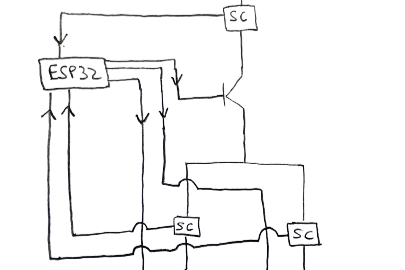 SC
ESP32
SC
SC